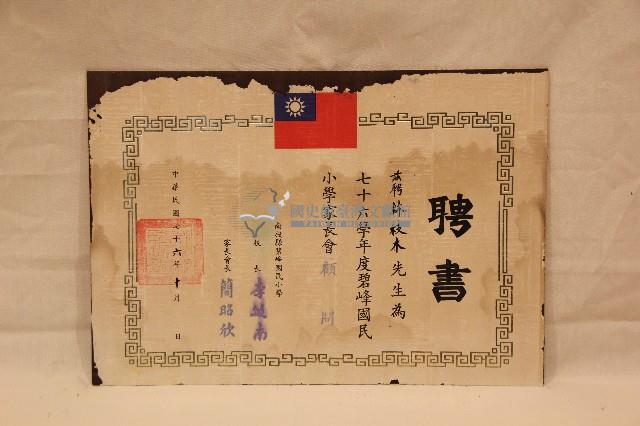 聘書
茲聘林枝木先生為
七十六學年度碧峰國民
小學家長會顧問
南投縣碧峰國民小學
校長
家長會長 簡昭欣
中華民國七十六年十月 日
國史館臺灣文獻館